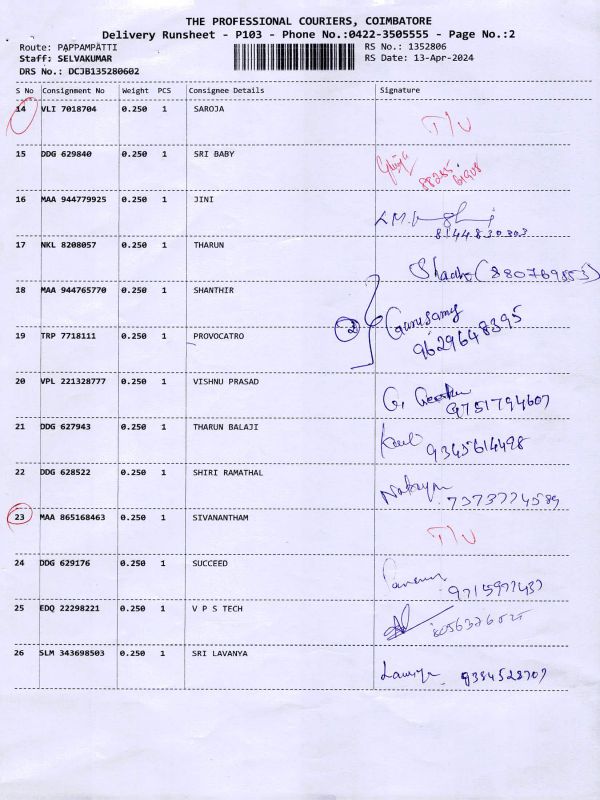 THE PROFESSIONAL COURIERS, COIMBATORE
Delivery Runsheet - P103 - Phone No.:0422-3505555 - Page No.:2
Route: PAPPAMPATTI
RS No.: 1352806
Staff: SELVAKUMAR
RS Date: 13-Apr-2024
DRS No.: DCJB135280602
S No Consignment No Weight PCS Consignee Details Signature
14 VLI 7018704 0.250 1 SAROJA T/U
15 DDG 629840 0.250 1 SRI BABY
16 MAA 944779925 0.250 1 JINI
8144830303
17 NKL 8208057 0.250 1 THARUN
18 MAA 944765770 0.250 1 SHANTHIR
2 Gurusamy
9629648395
19 TRP 7718111 0.250 1 PROVOCATRO
20 VPL 221328777 0.250 1 VISHNU PRASAD
9751794607
21 DDG 627943 0.250 1 THARUN BALAJI 9345614498
22 DDG 628522 0.250 1 SHIRI RAMATHAL 7373774589
23 MAA 865168463 0.250 1 SIVANANTHAM T/U
24 DDG 629176 0.250 1 SUCCEED
9715977437
25 EDQ 22298221 0.250 1 V P S TECH
26 SLM 343698503 0.250 1 SRI LAVANYA
9384523707